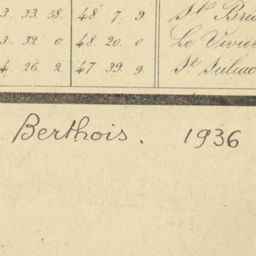 3. 33. 38. 48 7. 9 St Bri
3. 32. 0 48. 20. 0 Le Vivie
4. 26. 2 47 39. 9 St Julia
Berthois. 1936